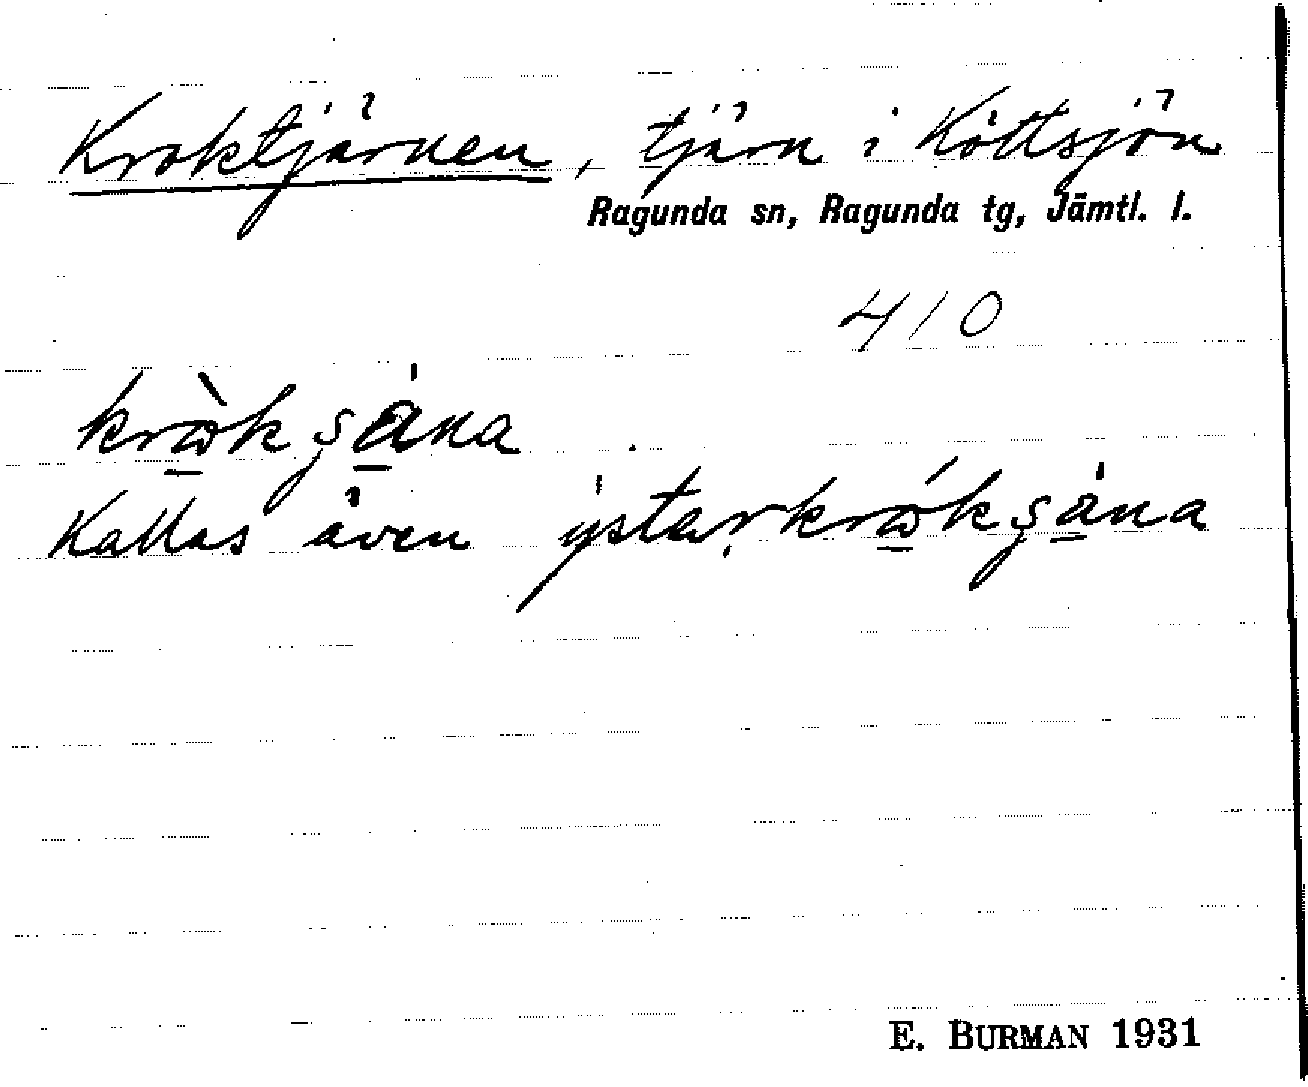 Kroktjärnen, tjärn i Köttsjön
Ragunda sn, Ragunda tg, Jämtl. l.
410
kròkșána
Kallas även ýstaṛkrókșána
E. BURMAN 1931